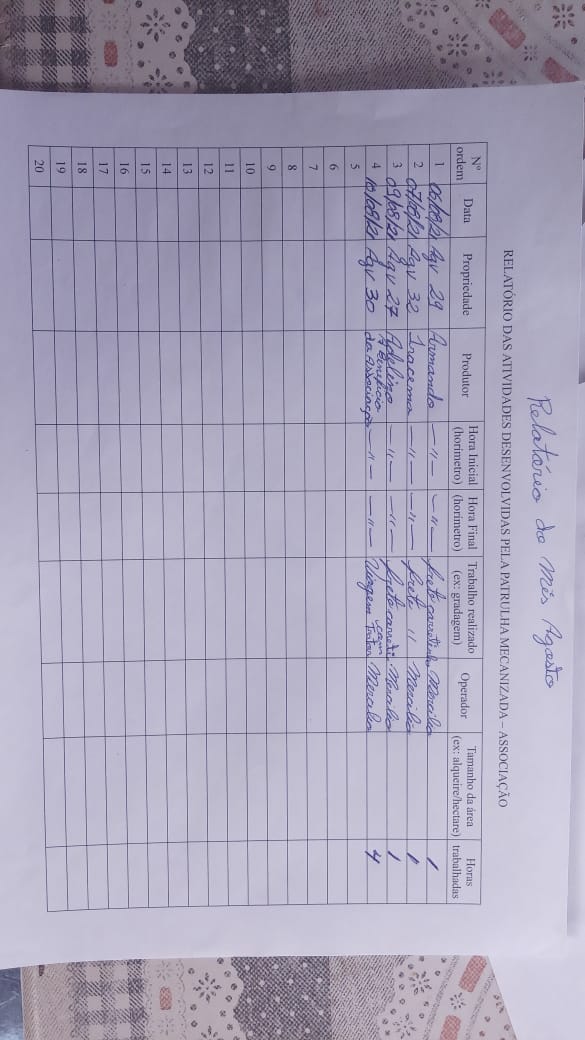 Relatório do Mês Agosto
RELATÓRIO DAS ATIVIDADES DESENVOLVIDAS PELA PATRULHA MECANIZADA - ASSOCIAÇÃO
Nº ordem Data Propriedade Produtor Hora Inicial (horimetro) Hora Final (horimetro) Trabalho realizado (ex: gradagem) Operador Tamanho da área (ex: alqueire/hectare) Horas trabalhadas
1 06/08/21 Agv 29 Armando — " — — " — frete carretinha 1
2 07/08/21 Agv 32 Iracema — " — — " — frete " 1
3 09/08/21 Agv 27 Adelino — " — — " — frete 1
4 10/08/21 Agv 30 A Beneficio da Associação — " — — " — Viagem com Trator 4
5
6
7
8
9
10
11
12
13
14
15
16
17
18
19
20